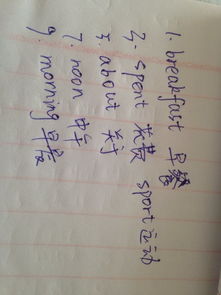 1. breakfast 早餐
2. spent 花费 sport 运动
3. about 关于
7. noon 中午
9. morning 早晨